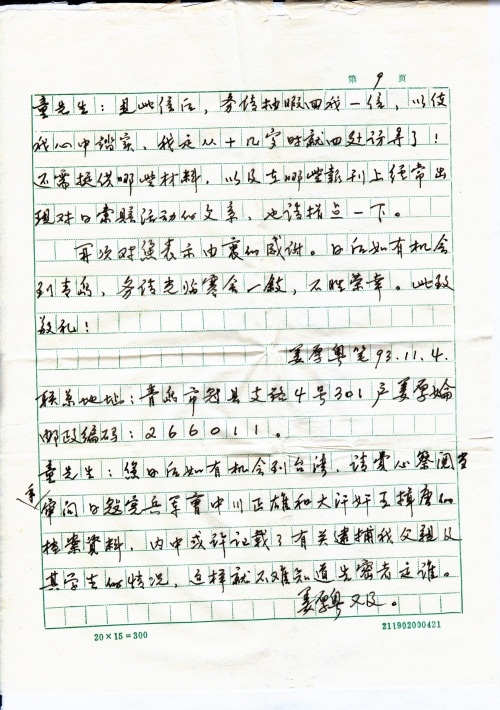 第 9 页
童先生：见此信后，务请抽暇回我一信，以使
我心中踏实，我是从十几岁时就四处访寻了！
还需提供哪些材料，以及在哪些报刊上经常出
现对日索赔活动的文章，也请指点一下。
再次对您表示由衷的感谢。日后如有机会
到青岛，务请光临寒舍一叙，不胜荣幸。此致
敬礼！
姜厚粤笔 93.11.4.
联系地址：青岛市冠县支路4号301户姜厚
邮政编码：266011。
童先生：您日后如有机会到台湾，请费心察阅当
年
审问日
宪兵军曹中川正雄和大汗奸王揖唐的
档案资料，内中或许记载了有关逮捕我父亲及
其学生的情况，这样就不难知道告密者是谁。
姜厚粤又及。
20×15=300
211902000421